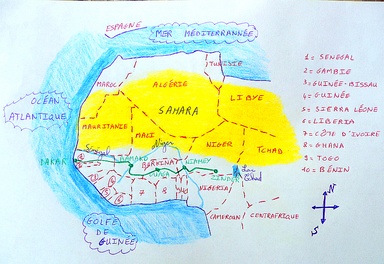 ESPAGNE
MER MÉDITERRANNÉE
TUNISIE
MAROC
ALGÉRIE
LIBYE
OCÉAN
ATLANTIQUE
SAHARA
MAURITANIE
MALI
NIGER
TCHAD
Sénégal
Niger
DAKAR
BAMAKO
BURKINA
NIAMEY
ZINDER
Lac
Tchad
NIGERIA
CAMEROUN
CENTRAFRIQUE
GOLFE
DE
GUINÉE
1 = SENEGAL
2 = GAMBIE
3 = GUINÉE-BISSAU
4 = GUINÉE
5 = SIERRA LÉONE
6 = LIBERIA
7 = CÔTE D'IVOIRE
8 = GHANA
9 = TOGO
10 = BÉNIN
N
S